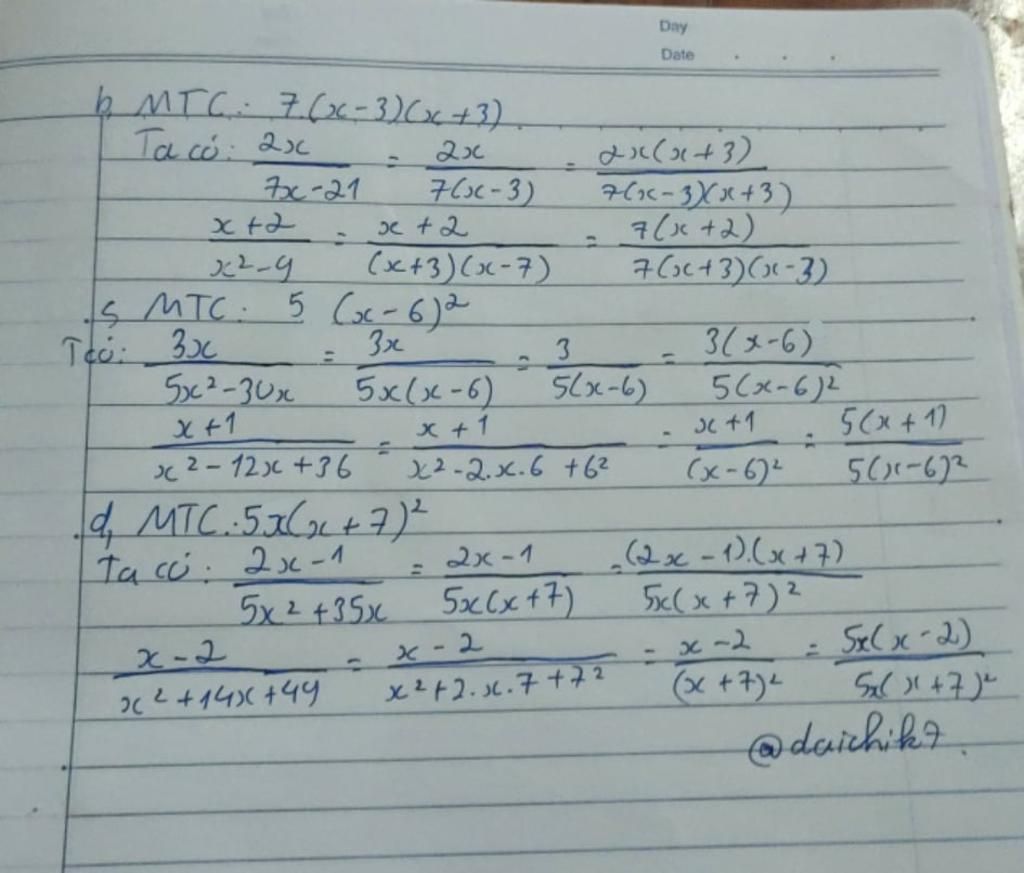 Day
Date . . .
b, MTC: 7.(x-3)(x+3)
Ta có: 2x/(7x-21) = 2x/(7(x-3)) = 2x(x+3)/(7(x-3)(x+3))
(x+2)/(x²-9) = (x+2)/((x+3)(x-7)) = 7(x+2)/(7(x+3)(x-3))
c, MTC: 5 (x-6)²
Tcó: 3x/(5x²-30x) = 3x/(5x(x-6)) = 3/(5(x-6)) = 3(x-6)/(5(x-6)²)
(x+1)/(x²-12x+36) = (x+1)/(x²-2.x.6+6²) = (x+1)/((x-6)²) = 5(x+1)/(5(x-6)²)
d, MTC: 5x(x+7)²
Ta có: (2x-1)/(5x²+35x) = (2x-1)/(5x(x+7)) = (2x-1).(x+7)/(5x(x+7)²)
(x-2)/(x²+14x+49) = (x-2)/(x²+2.x.7+7²) = (x-2)/((x+7)²) = 5x(x-2)/(5x(x+7)²)
@daichik7.